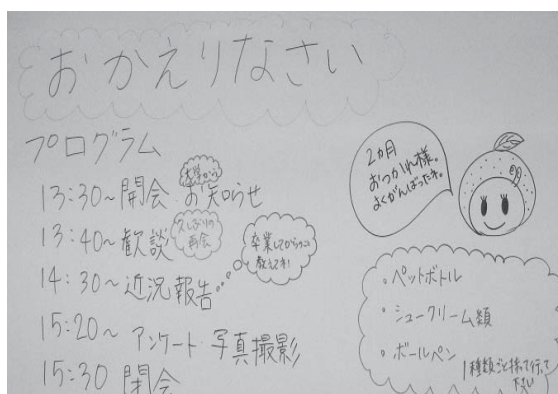 おかえりなさい
プログラム
13:30～開会 お知らせ
本学から
13:40～歓談
久しぶりの
再会
14:30～近況報告
卒業してからのこと
教えてネ!
15:20～アンケート・写真撮影
15:30 閉会
2カ月
おつかれ様。
よくがんばったネ。
・ペットボトル
・シュークリーム類
・ボールペン
1種類ごと持って行って
下さい